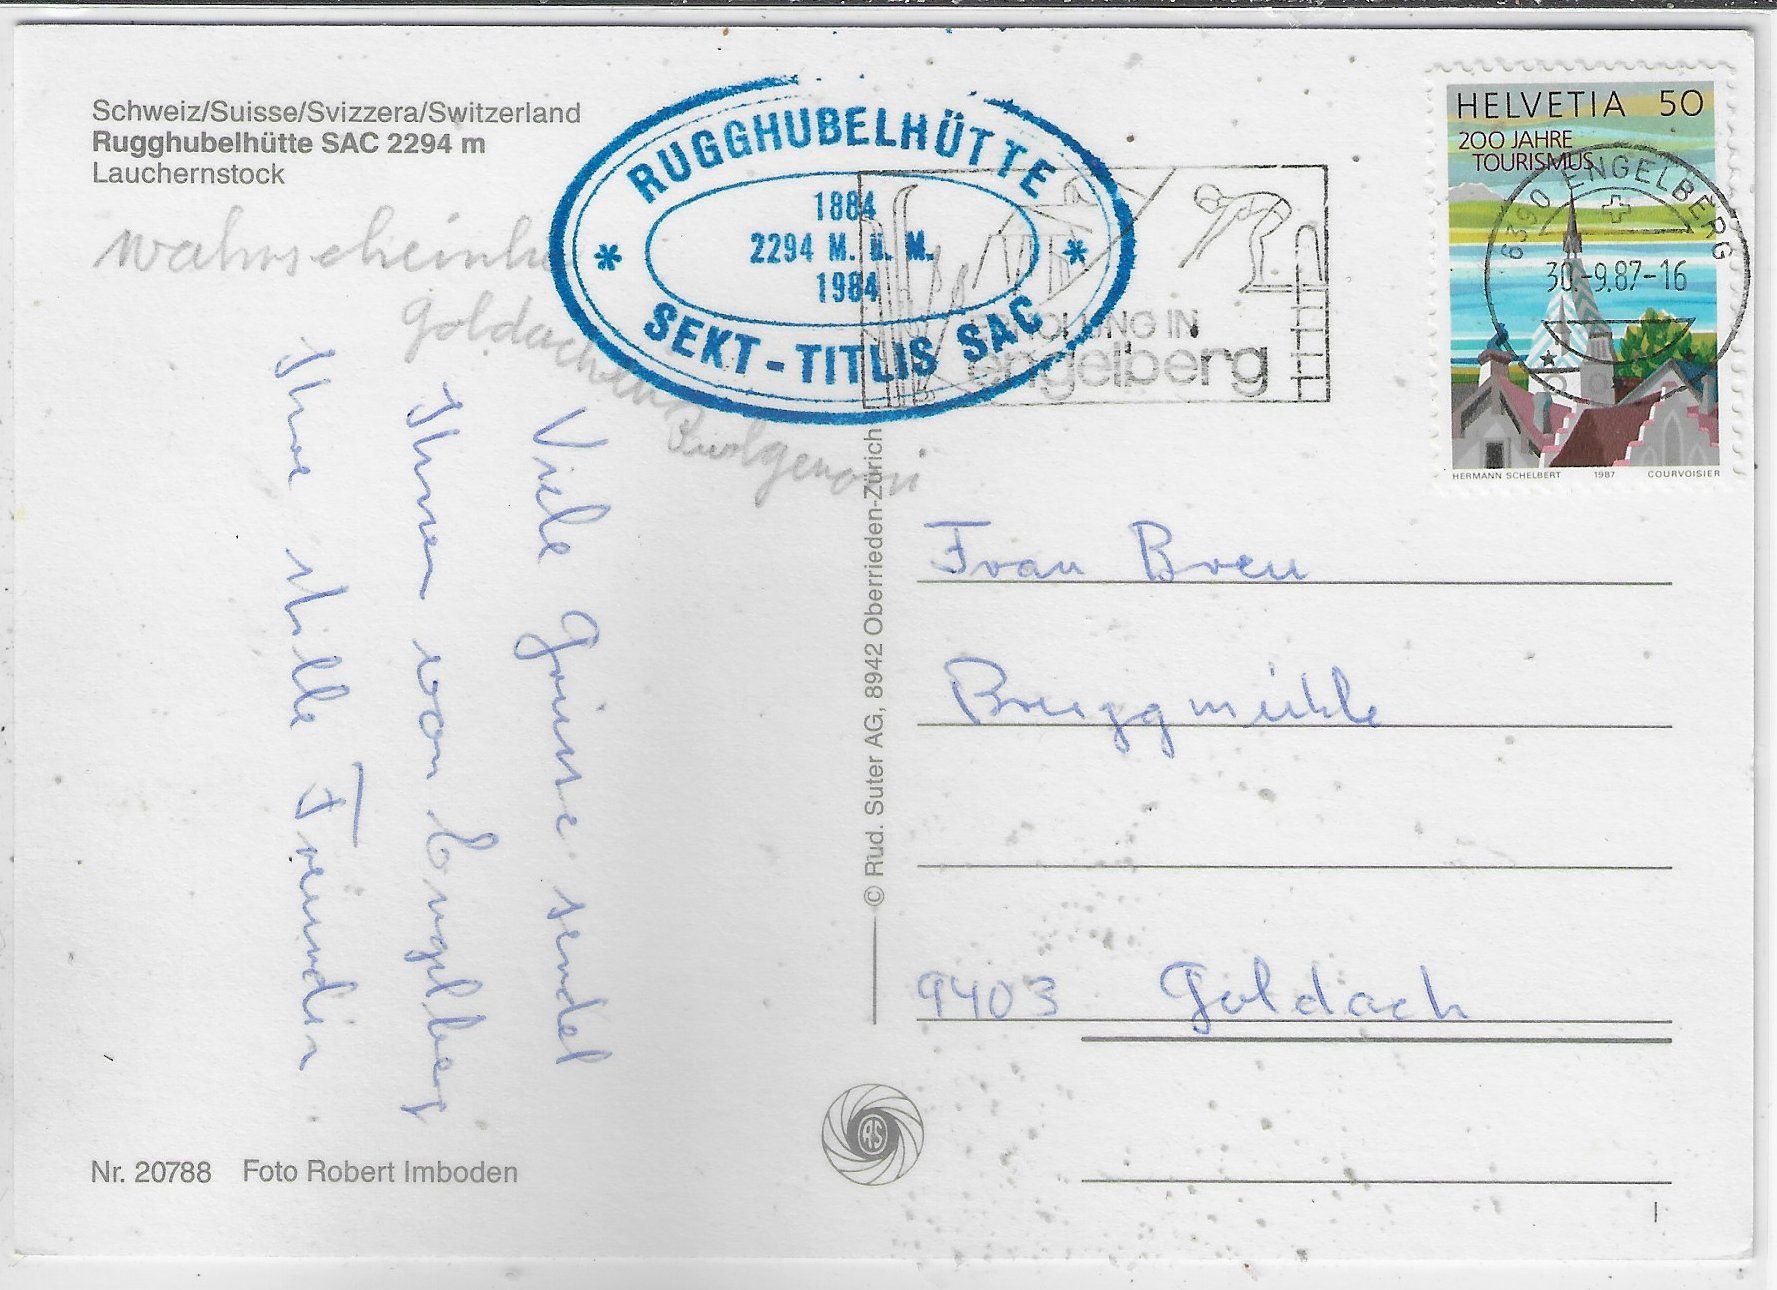 Schweiz/Suisse/Svizzera/Switzerland
Rugghubelhütte SAC 2294 m
Lauchernstock
RUGGHUBELHÜTTE
1884
2294 M. ü. M.
1984
* SEKT-TITLIS SAC *
IN
engelberg
HELVETIA 50
200 JAHRE
TOURISMUS
HERMANN SCHELBERT 1987 COURVOISIER
6390 ENGELBERG
30.-9.87-16
Viele Grüsse sendet
Ihnen von Engelberg
Ihre stille Freundin
© Rud. Suter AG, 8942 Oberrieden-Zürich
Frau Breu
Bruggmühle
9403 Goldach
RS
Nr. 20788 Foto Robert Imboden